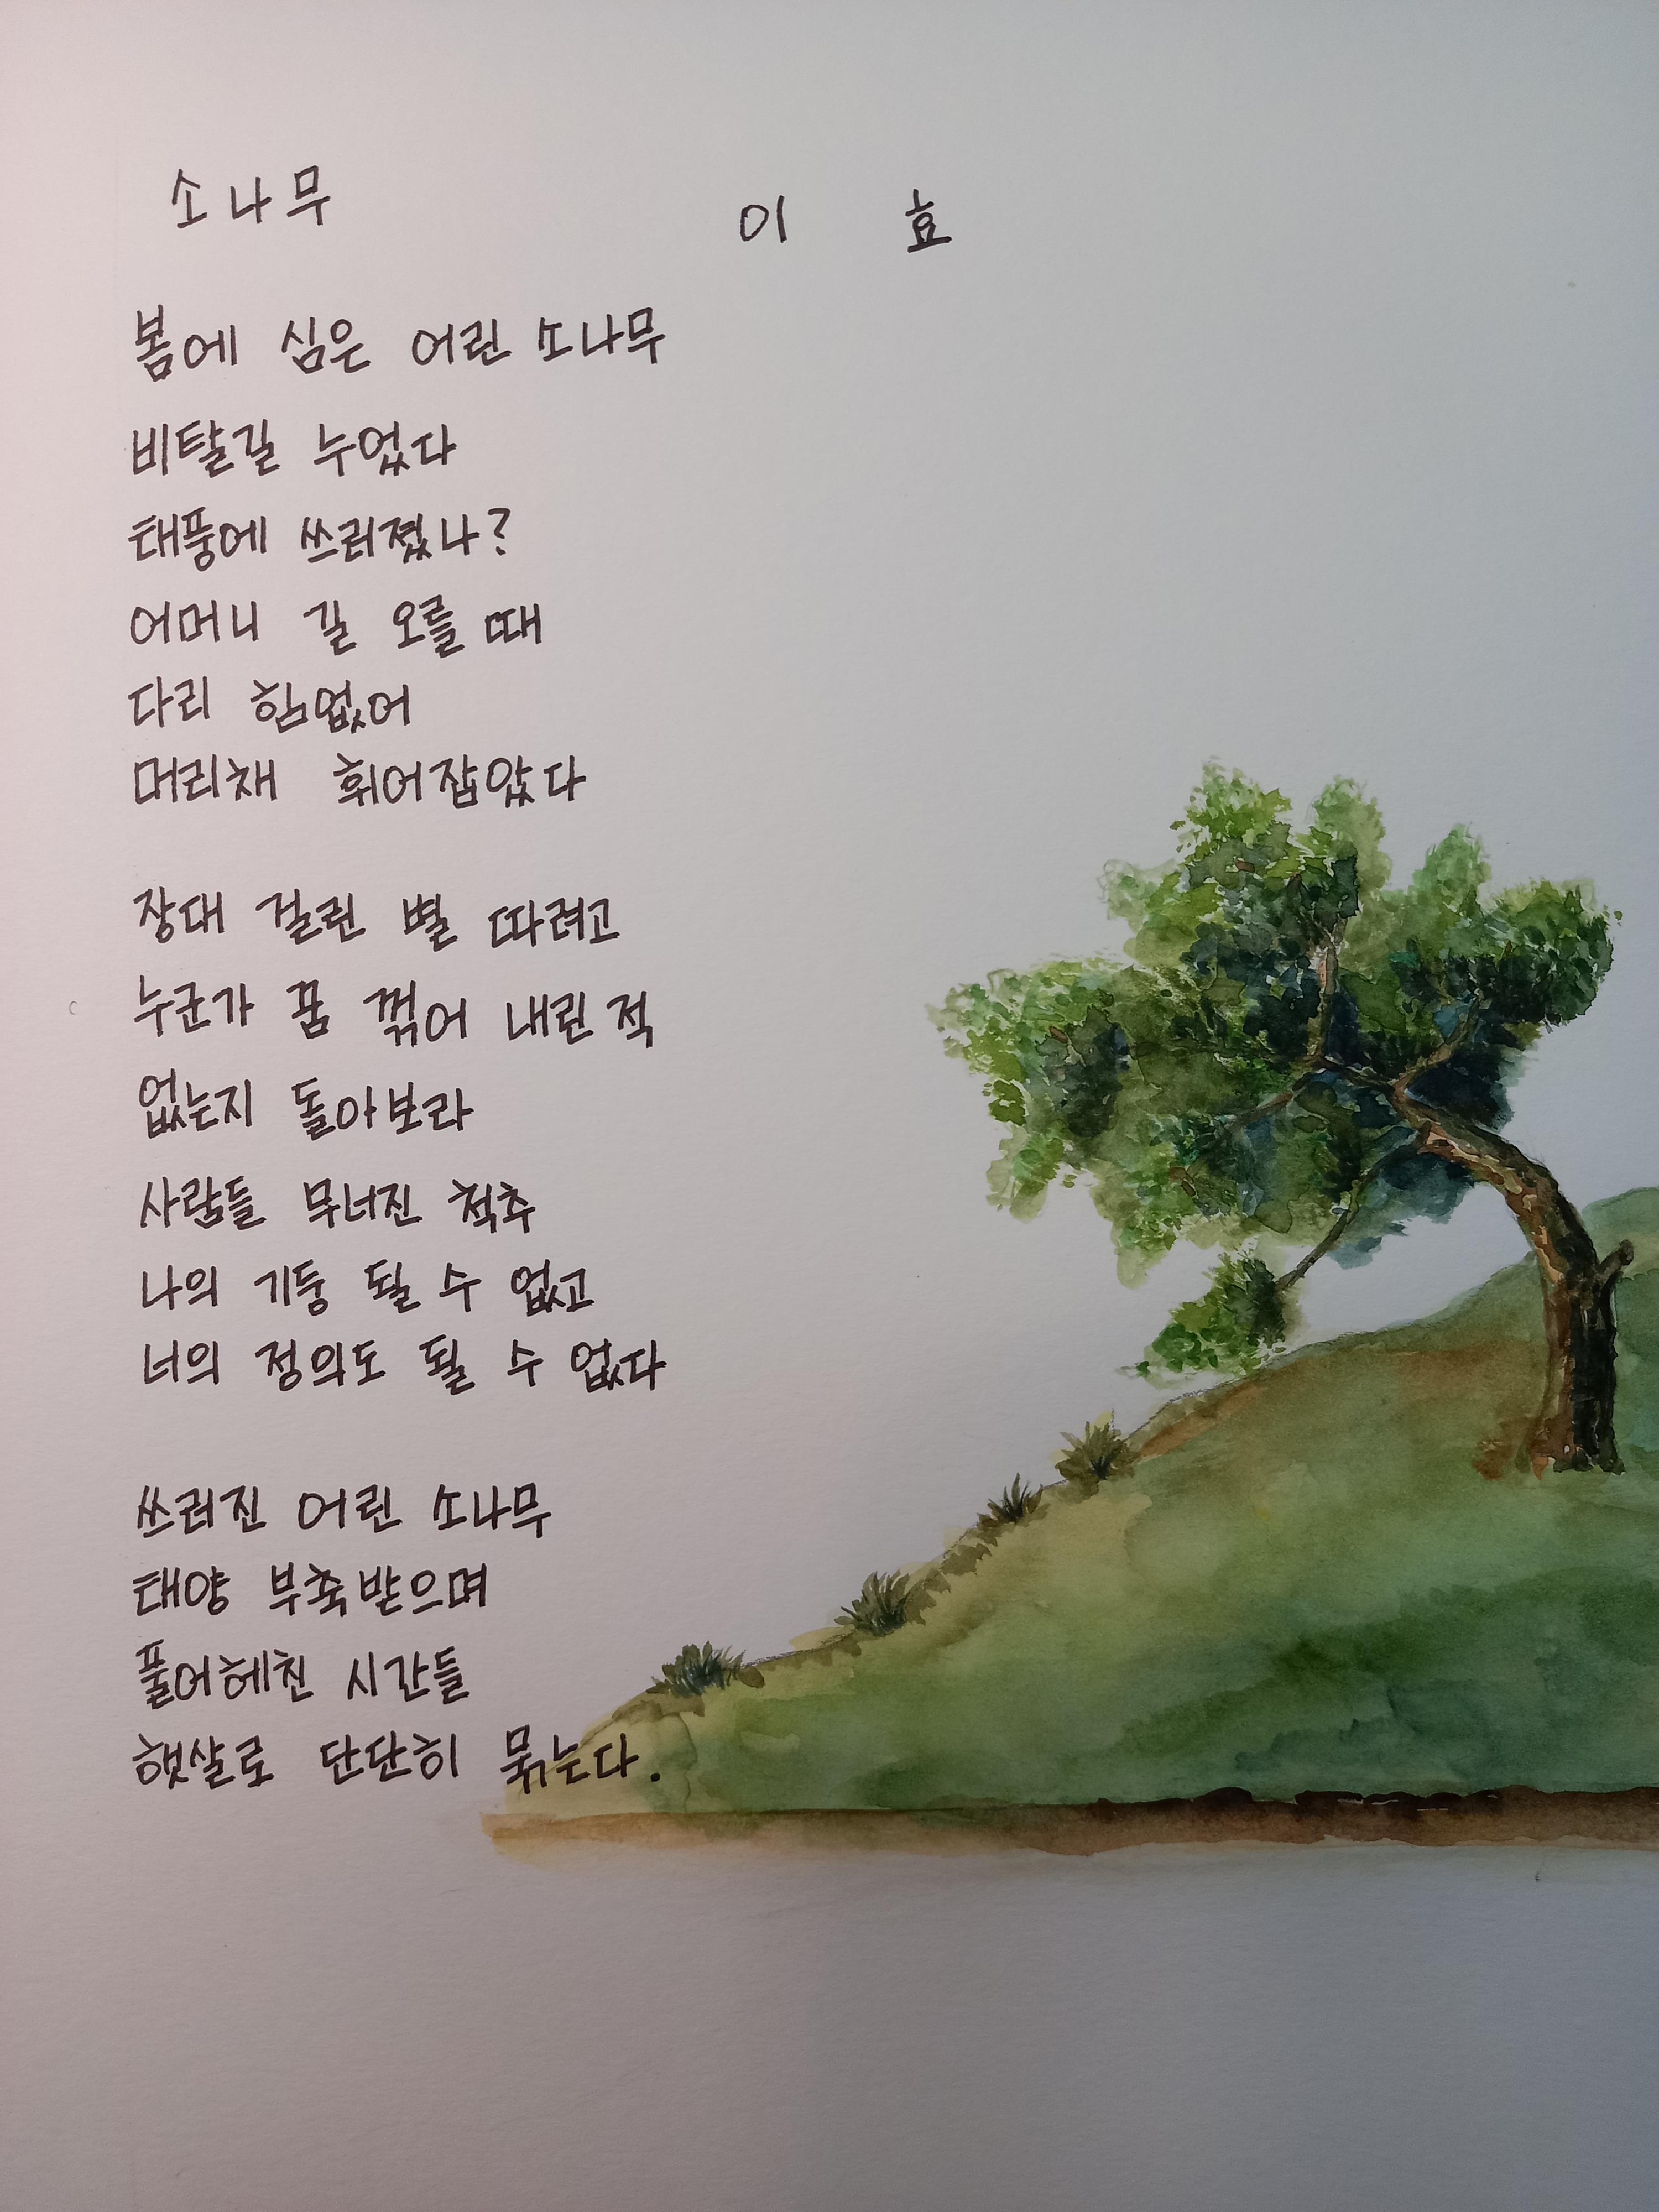 소나무
이 효
봄에 심은 어린 소나무
비탈길 누었다
태풍에 쓰러졌나?
어머니 길 오를 때
다리 힘없어
머리채 휘어잡았다
장대 걸린 별 따려고
누군가 꿈 꺾어 내린 적
없는지 돌아보라
사람들 무너진 척추
나의 기둥 될 수 없고
너의 정의도 될 수 없다
쓰러진 어린 소나무
태양 부축받으며
풀어헤친 시간들
햇살로 단단히 묶는다.